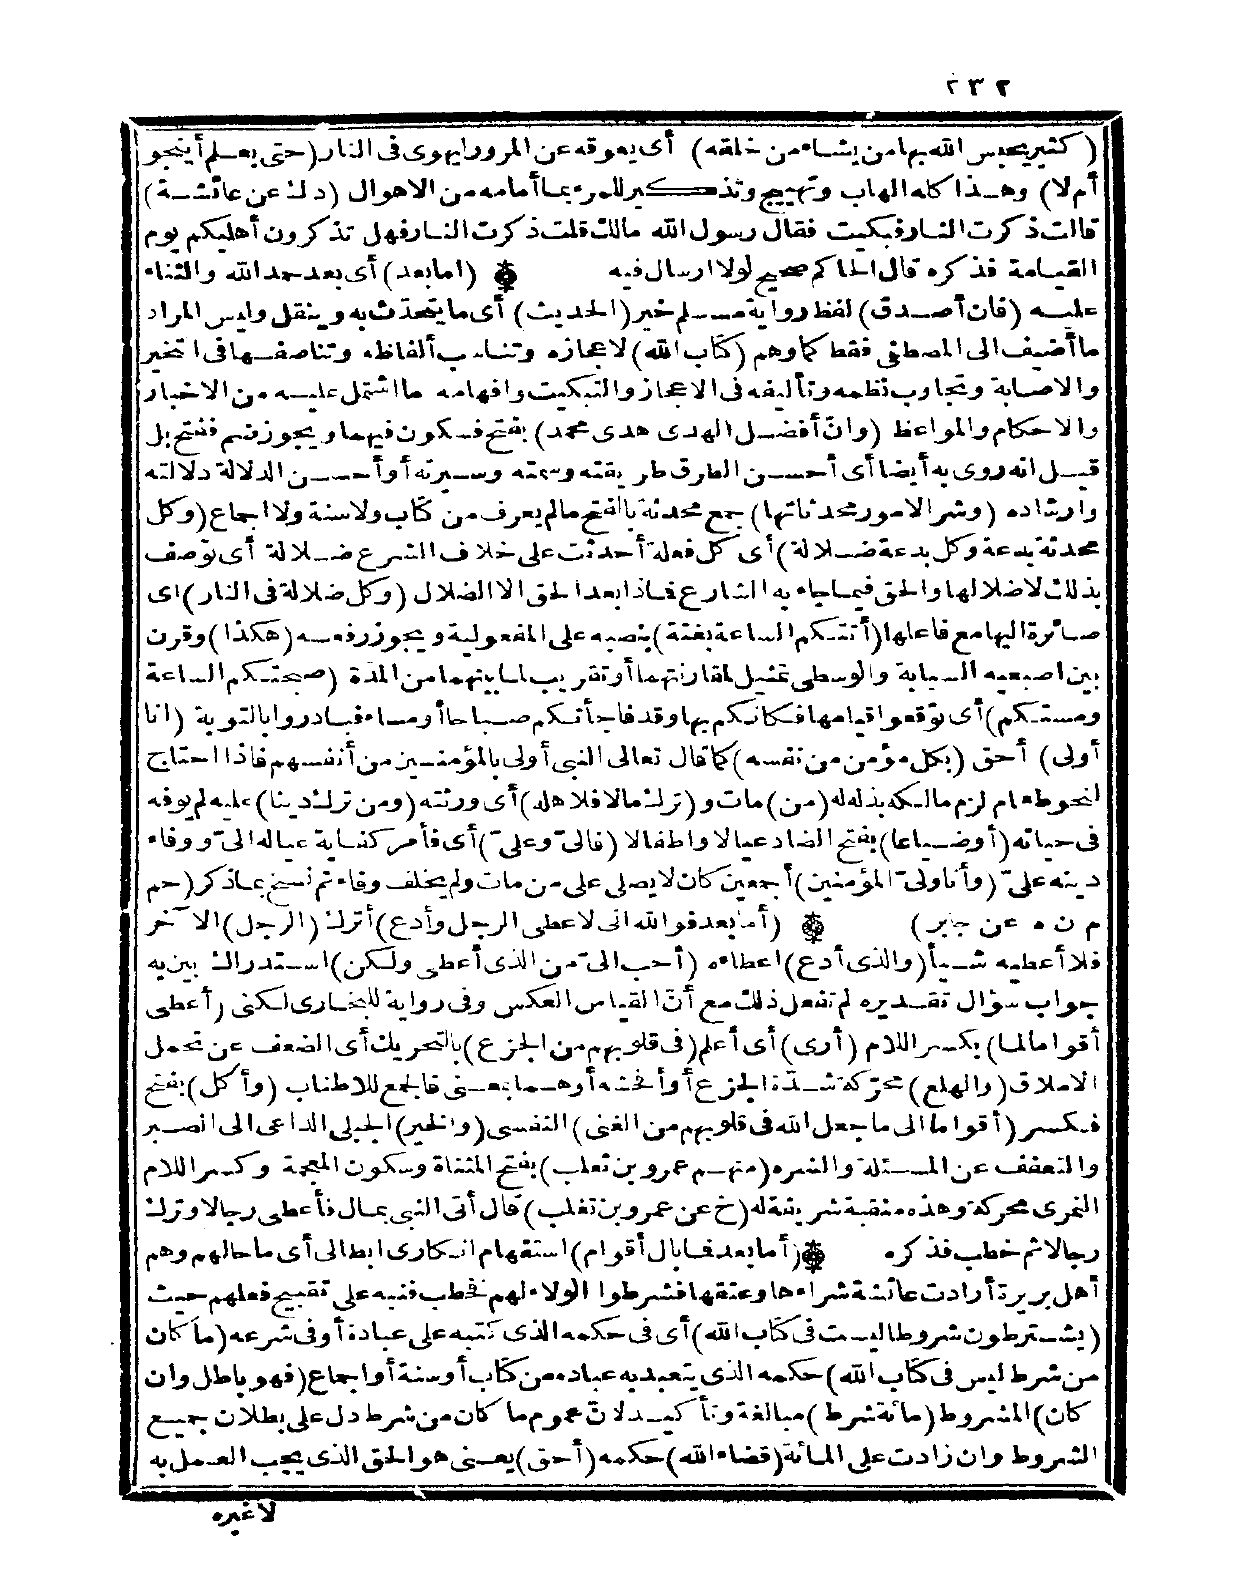 ٢٣٢
(كثير يحبس الله بها من يشاء من خلقه) أى يعوقه عن المرور ليهوى فى النار (حتى يعلم أينجو
أم لا) وهذا كله الهاب وتهييج وتذكير للمرء بما أمامه من الاهوال (دك عن عائشة)
قالت ذكرت النار فبكيت فقال رسول الله مالك قلت ذكرت النار فهل تذكرون أهليكم يوم
القيامة فذكره قال الحاكم صحيح لولا ارسال فيه (اما بعد) أى بعد حمد الله والثناء
عليه (فان أصدق) لفظ رواية مسلم خير (الحديث) أى ما يتحدث به وينقل وليس المراد
ما أضيف الى المصطفى فقط كما وهم (كتاب الله) لاعجازه وتناسب ألفاظه وتناصفها فى التخير
والاصابة وتجاوب نظمه وتأليفه فى الاعجاز والتبكيت وافهامه ما اشتمل عليه من الاخبار
والاحكام والمواعظ (وان أفضل الهدى هدى محمد) بفتح فسكون فيهما ويجوز ضم ففتح بل
قيل انه روى به أيضا أى أحسن الطرق طريقته وسمته وسيرته أو أحسن الدلالة دلالته
وارشاده (وشر الامور محدثاتها) جمع محدثة بالفتح ما لم يعرف من كتاب ولا سنة ولا اجماع (وكل
محدثة بدعة وكل بدعة ضلالة) أى كل فعلة أحدثت على خلاف الشرع ضلالة أى توصف
بذلك لاضلالها والحق فيما جاء به الشارع فماذا بعد الحق الا الضلال (وكل ضلالة فى النار) اى
صائرة اليها مع فاعلها (أتتكم الساعة بغتة) بنصبه على المفعولية ويجوز رفعه (هكذا) وقرن
بين اصبعيه السبابة والوسطى تمثيل لمقارنتهما أو تقريب لما بينهما من المدة (صبحتكم الساعة
ومستكم) أى توقعوا قيامها فكانكم بها وقد فاجأتكم صباحا أو مساء فبادروا بالتوبة (انا
أولى) أحق (بكل مؤمن من نفسه) كما قال تعالى النبى أولى بالمؤمنين من أنفسهم فاذا احتاج
لنحو طعام لزم مالكه بذله له (من) مات و(ترك مالا فلاهله) أى ورثته (ومن ترك دينا) عليه لم يوفه
فى حياته (أو ضياعا) بفتح الضاد عيالا واطفالا (فالىّ وعلىّ) أى فأمر كفاية عياله الىّ ووفاء
دينه علىّ (وأنا ولىّ المؤمنين) أجمعين كان لا يصلى على من مات ولم يخلف وفاء ثم نسخ بما ذكر (حم
م ن ه عن جابر) (أما بعد فوالله انى لاعطى الرجل وأدع) أترك (الرجل) الآخر
فلا أعطيه شيأ (والذى أدع) اعطاءه (أحب الىّ من الذى أعطى ولكن) استدراك بين به
جواب سؤال تقديره لم تفعل ذلك مع أن القياس العكس وفى رواية للبخارى لكنى (أعطى
أقواما لما) بكسر اللام (أرى) أى أعلم (فى قلوبهم من الجزع) بالتحريك أى الضعف عن تحمل
الاملاق (والهلع) محركة شدة الجزع أو أفحشه أو هما بمعنى فالجمع للاطناب (وأكل) بفتح
فكسر (أقواما الى ما جعل الله فى قلوبهم من الغنى) النفسى (والخير) الجبلى الداعى الى الصبر
والتعفف عن المسئلة والشره (منهم عمرو بن تغلب) بفتح المثناة وسكون المعجمة وكسر اللام
النمرى محركة وهذه منقبة شريفة له (خ عن عمرو بن تغلب) قال أتى النبى بمال فأعطى رجالا وترك
رجالا ثم خطب فذكره (أما بعد فما بال أقوام) استفهام انكارى ابطالى أى ما حالهم وهم
أهل بريرة أرادت عائشة شراءها وعتقها فشرطوا الولاء لهم فخطب فنبه على تقبيح فعلهم حيث
(يشترطون شروطا ليست فى كتاب الله) أى فى حكمه الذى كتبه على عباده أو فى شرعه (ما كان
من شرط ليس فى كتاب الله) حكمه الذى يتعبد به عباده من كتاب أو سنة أو اجماع (فهو باطل وان
كان) المشروط (مائة شرط) مبالغة وتأكيد لان عموم ما كان من شرط دل على بطلان جميع
الشروط وان زادت على المائة (قضاء الله) حكمه (أحق) يعنى هو الحق الذى يجب العمل به
لا غيره